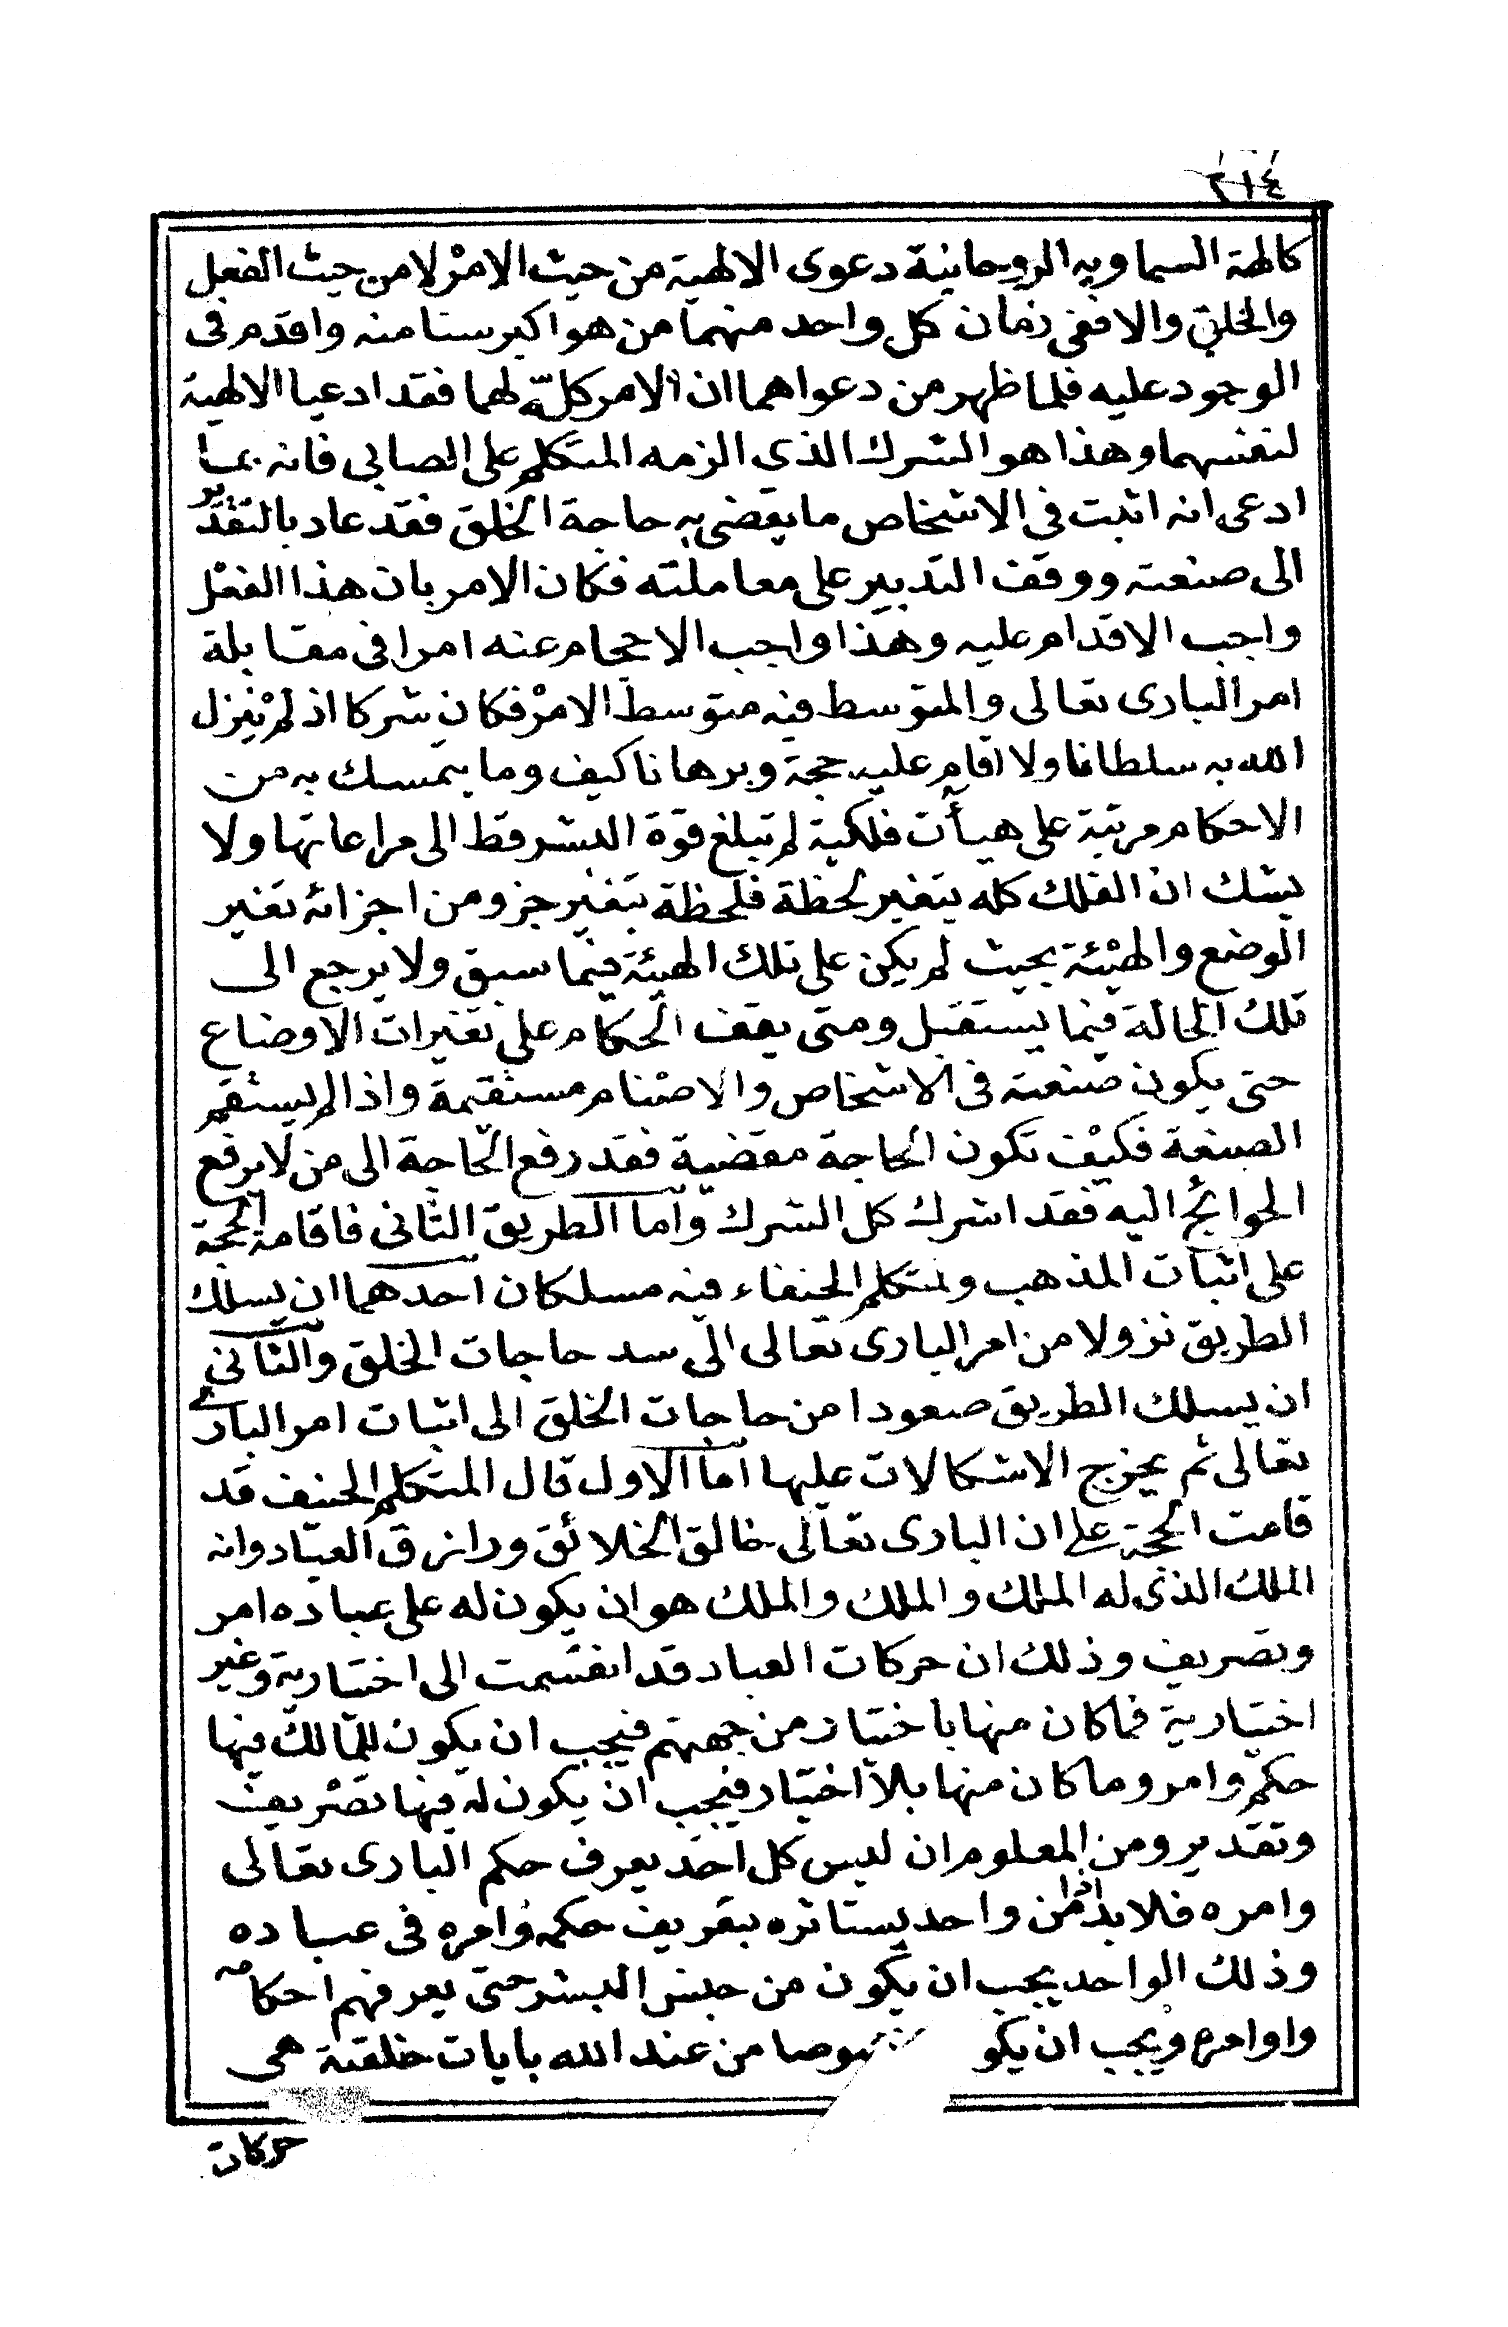 ٢١٤
كالهة السماويه الروحانية دعوى الالهية من حيث الامر لا من حيث الفعل
والخلق والا ففى زمان كل واحد منهما من هو اكبر سنا منه واقدم فى
الوجود عليه فلما ظهر من دعواهما ان الامر كله لهما فقد ادعيا الالهية
لنفسهما وهذا هو الشرك الذى الزمه المتكلم على الصابى فانه بما
ادعى انه اثبت فى الاشخاص ما يقضى به حاجة الخلق فقد عاد بالتقدير
الى صنعته ووقف التدبير على معاملته فكان الامر بان هذا الفعل
واجب الاقدام عليه وهذا واجب الاحجام عنه امرا فى مقابلة
امر البارى تعالى والمتوسط فيه متوسط الامر فكان شركا اذ لم ينزل
الله به سلطانا ولا اقام عليه حجة وبرهانا كيف وما يتمسك به من
الاحكام مرتبة على هيأت فلكية لم تبلغ قوة البشر قط الى مراعاتها ولا
يشك ان الفلك كله يتغير لحظة فلحظة بتغير جزو من اجزائه تغير
الوضع والهيئة بحيث لم يكن على تلك الهيئة فيما سبق ولا يرجع الى
تلك الحالة فيما يستقبل ومتى يقف الحكام على تغيرات الاوضاع
حتى يكون صنعته فى الاشخاص والاصنام مستقيمة واذا لم يستقم
الصنعة فكيف تكون الحاجة مقضية فقد رفع الحاجة الى من لا يرفع
الحوائج اليه فقد اشرك كل الشرك واما الطريق الثانى فاقامة الحجة
على اثبات المذهب ولمتكلم الحنفاء فيه مسلكان احدهما ان يسلك
الطريق نزولا من امر البارى تعالى الى سد حاجات الخلق والثانى
ان يسلك الطريق صعودا من حاجات الخلق الى اثبات امر البارى
تعالى ثم يخرج الاشكالات عليها اما الاول قال المتكلم الحنيف قد
قامت الحجة على ان البارى تعالى خالق الخلائق ورازق العباد وانه
الملك الذى له الملك والملك والملك هو ان يكون له على عباده امر
وتصريف وذلك ان حركات العباد قد انقسمت الى اختيارية وغير
اختيارية فما كان منها باختيار من جهتهم فيجب ان يكون للمالك فيها
حكم وامر وما كان منها بلا اختيار فيجب ان يكون له فيها تصريف
وتقدير ومن المعلوم ان ليس كل احد يعرف حكم البارى تعالى
وامره فلا بد اذا من واحد يستاثره بتعريف حكمه وامره فى عباده
وذلك الواحد يجب ان يكون من جنس البشر حتى يعرفهم احكامه
واوامره ويجب ان يكو صوصا من عند الله بايات خلقية هى
حركات